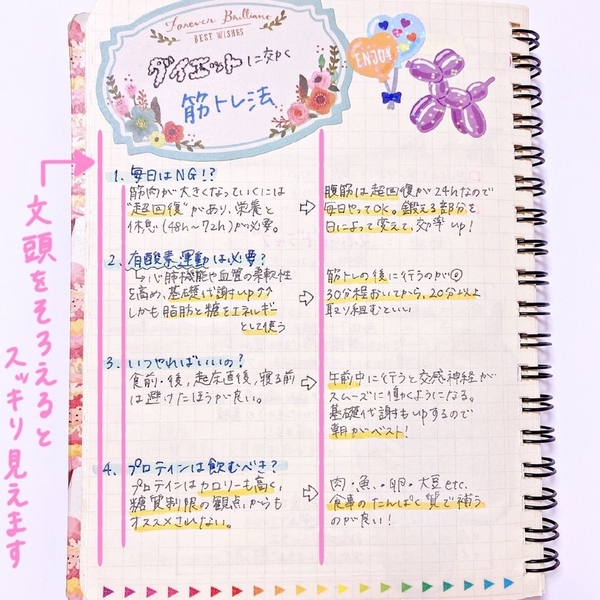 Forever Brilliant
BEST WISHES
ダイエットに効く
筋トレ法
ENJOY
文頭をそろえると
スッキリ見えます
1. 毎日はNG!?
筋肉が大きくなっていくには
"超回復"があり、栄養と
休息(48h〜72h)が必要。
⇨
腹筋は超回復が24hなので
毎日やってOK。鍛える部分を
日によって変えて、効率up!
2. 有酸素運動は必要?
↳心肺機能や血管の柔軟性
を高め、基礎代謝up↑↑
しかも脂肪と糖をエネルギー
として使う
⇨
筋トレの後に行うのが◎
30分程おいてから、20分以上
取り組むといい
3. いつやればいいの?
食前・後、起床直後、寝る前
は避けたほうが良い。
⇨
午前中に行うと交感神経が
スムーズに働くようになる。
基礎代謝もupするので
朝がベスト!
4. プロテインは飲むべき?
プロテインはカロリーも高く、
糖質制限の観点からも
オススメされない。
⇨
肉・魚・卵・大豆etc.
食事のたんぱく質で補う
のが良い!